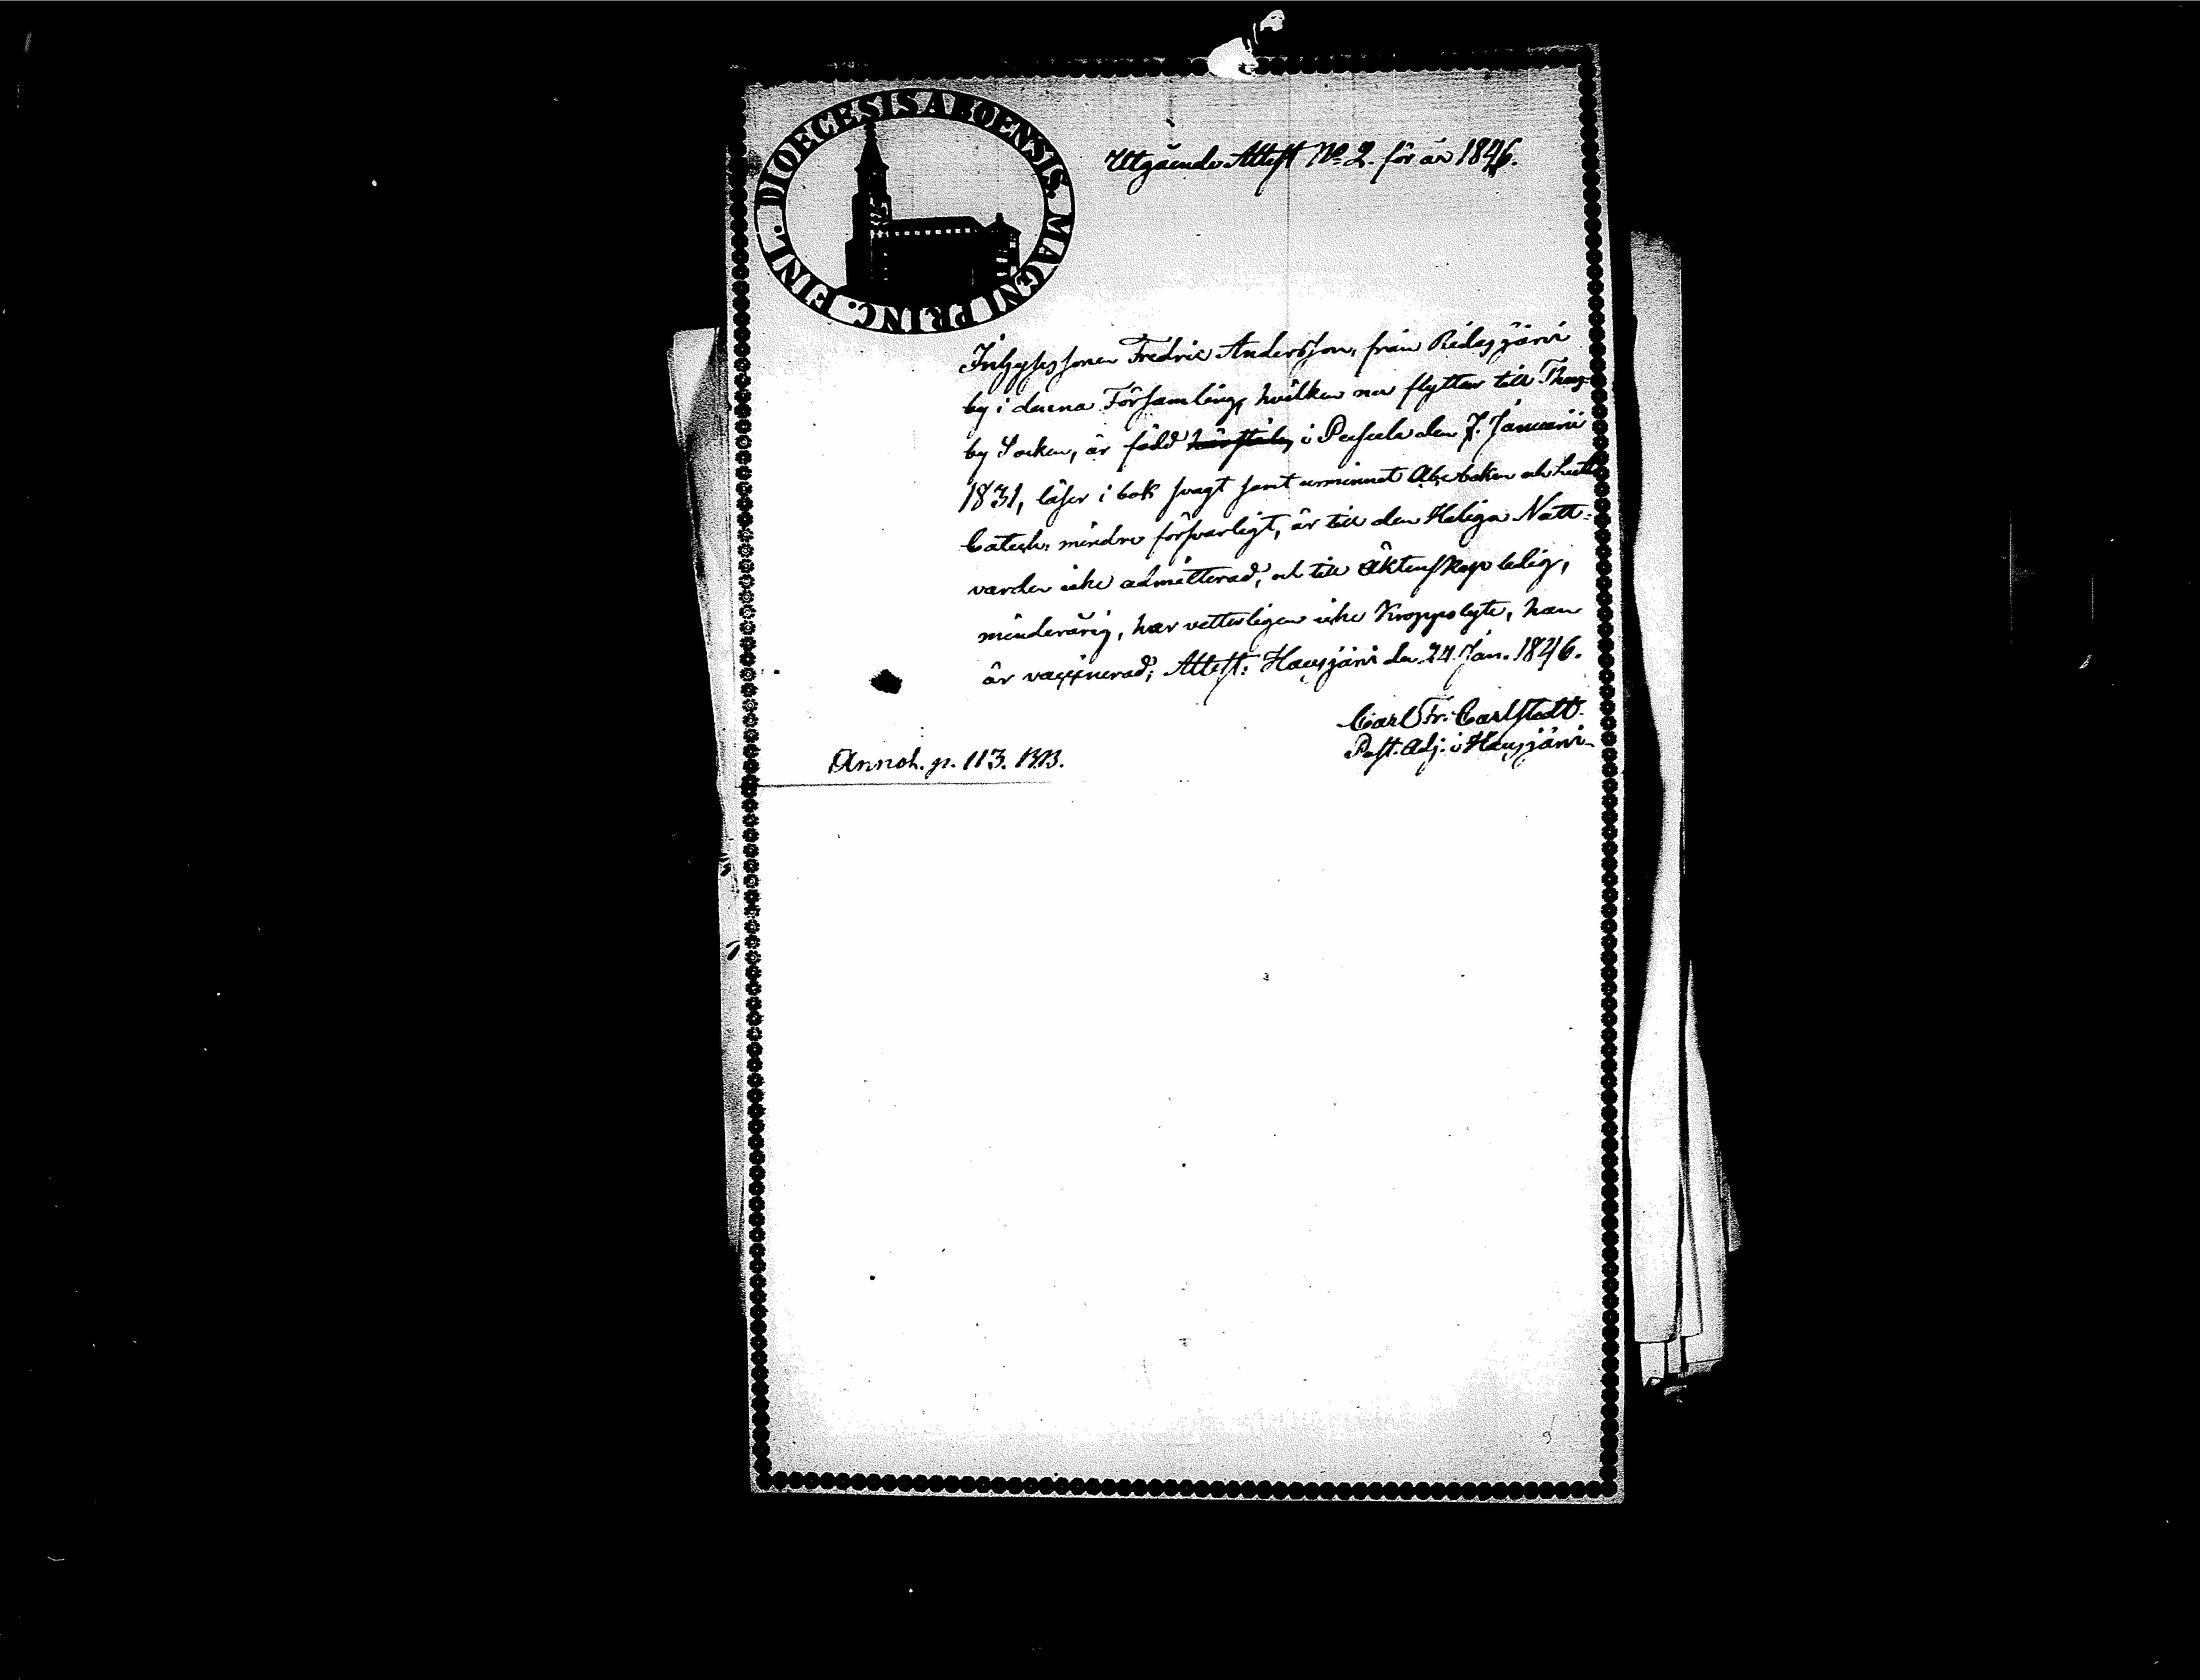 DIOECESIS ABOENSIS. MAGNI PRINC. FINL.
Utgående Attest No 2. för år 1846.
Inhyses sonen Fredric Andersson, från Ridasjärvi
by i denna Församling, hvilken nu flyttar till Thus-
by Socken, är född i Pusula den 7. Januarii
1831, läser i bok svagt samt urminnet Abc boken och Luth.
Catech. mindre försvarligt, är till den Heliga Natt-
varden icke admitterad, och till Äktenskap ledig,
minderårig, har vetterligen icke Kroppslyte, han
är vaccinerad; Attest: Hausjärvi den 24 Jan. 1846.
Carl Fr. Carlstedt
Past. Adj. i Hausjärvi.
Annoh. p. 113. BB.